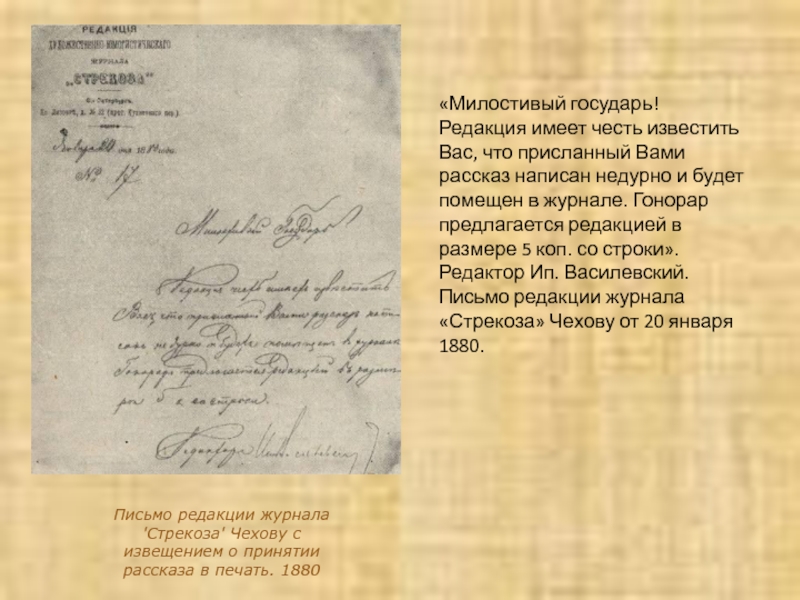 РЕДАКЦІЯ
ХУДОЖЕСТВЕННО-ЮМОРИСТИЧЕСКАГО
ЖУРНАЛА
„СТРЕКОЗА"
С.-Петербургъ,
Января 20 дня 1880 года.
№ 17
Милостивый Государь
Редакція имѣетъ честь извѣстить
Васъ, что присланный Вами разсказъ напи-
санъ недурно и будетъ помѣщенъ в журналѣ.
Гонораръ предлагается редакціей въ размѣ-
рѣ 5 к со строки.
Редакторъ
Письмо редакции журнала
'Стрекоза' Чехову с
извещением о принятии
рассказа в печать. 1880
«Милостивый государь!
Редакция имеет честь известить
Вас, что присланный Вами
рассказ написан недурно и будет
помещен в журнале. Гонорар
предлагается редакцией в
размере 5 коп. со строки».
Редактор Ип. Василевский.
Письмо редакции журнала
«Стрекоза» Чехову от 20 января
1880.